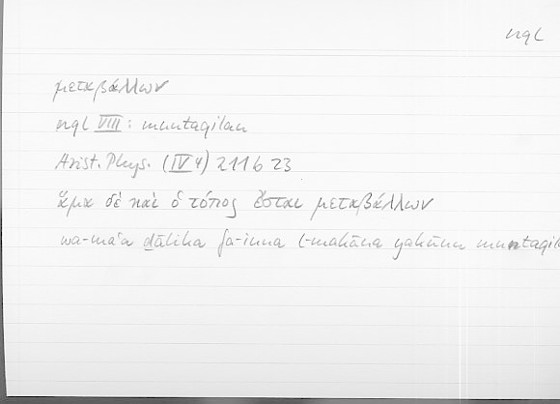 nql
μεταβάλλων
nql VIII: muntaqilan
Arist. Phys. (IV 4) 211 b 23
ἅμα δὲ καὶ ὁ τόπος ἔσται μεταβάλλων
wa-maʿa ḏālika fa-inna l-makāna yakūnu muntaqil